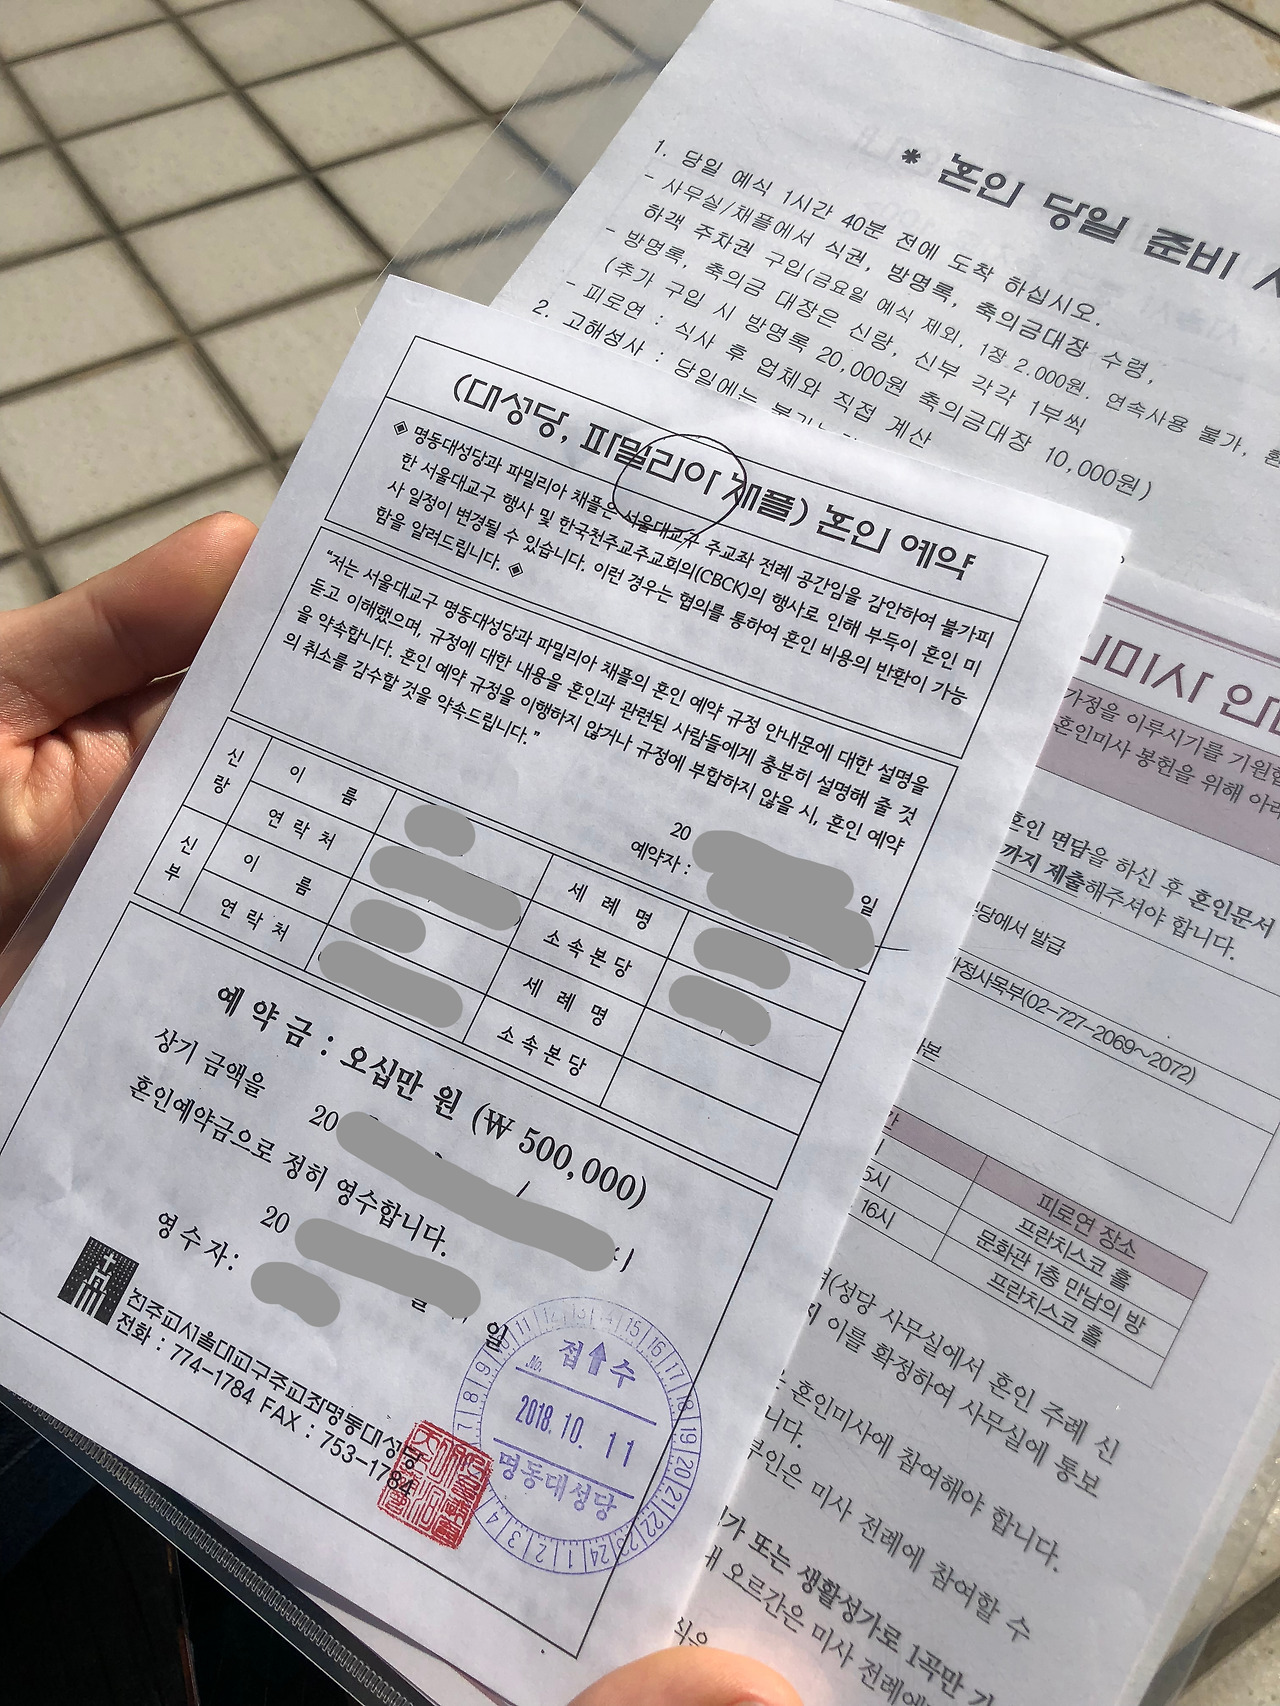 * 혼인 당일 준비
1. 당일 예식 1시간 40분 전에 도착 하십시오.
- 사무실/채플에서 식권, 방명록, 축의금대장 수령,
하객 주차권 구입(금요일 예식 제외, 1장 2.000원. 연속사용 불가,
- 방명록, 축의금 대장은 신랑, 신부 각각 1부씩
(추가 구입 시 방명록 20,000원 축의금대장 10,000원)
- 피로연 : 식사 후 업체와 직접 계산
2. 고해성사 : 당일에는
(대성당, 파밀리아 채플) 혼인 예약
◈ 명동대성당과 파밀리아 채플은 서울대교구 주교좌 전례 공간임을 감안하여 불가피
한 서울대교구 행사 및 한국천주교주교회의(CBCK)의 행사로 인해 부득이 혼인 미
사 일정이 변경될 수 있습니다. 이런 경우는 협의를 통하여 혼인 비용의 반환이 가능
함을 알려드립니다. ◈
“저는 서울대교구 명동대성당과 파밀리아 채플의 혼인 예약 규정 안내문에 대한 설명을
듣고 이해했으며, 규정에 대한 내용을 혼인과 관련된 사람들에게 충분히 설명해 줄 것
을 약속합니다. 혼인 예약 규정을 이행하지 않거나 규정에 부합하지 않을 시, 혼인 예약
의 취소를 감수할 것을 약속드립니다.”
20 일
예약자 :
신랑 이 름 세 례 명
연 락 처 소 속 본 당
신부 이 름 세 례 명
연 락 처 소 속 본 당
예 약 금 : 오십만 원 (₩ 500,000)
상기 금액을 20
혼인예약금으로 정히 영수합니다.
20 일
영 수 자 :
천주교서울대교구주교좌명동대성당
전화 : 774-1784 FAX : 753-1784
접수
No.
2018. 10. 11
명동대성당
1 2 3 4 7 8 9 10 11 12 13 14 15 16 17 18 19 20 21 22 23 24
미사 안
가정을 이루시기를 기원합
혼인미사 봉헌을 위해 아래
혼인 면담을 하신 후 혼인문서
까지 제출해주셔야 합니다.
당에서 발급
가정사목부(02-727-2069~2072)
피로연 장소
5시 프란치스코 홀
16시 문화관 1층 만남의 방
프란치스코 홀
(성당 사무실에서 혼인 주례 신
이를 확정하여 사무실에 통보
혼인미사에 참여해야 합니다.
니다.
부인은 미사 전례에 참여할 수
가 또는 생활성가로 1곡만
오르간은 미사 전례에